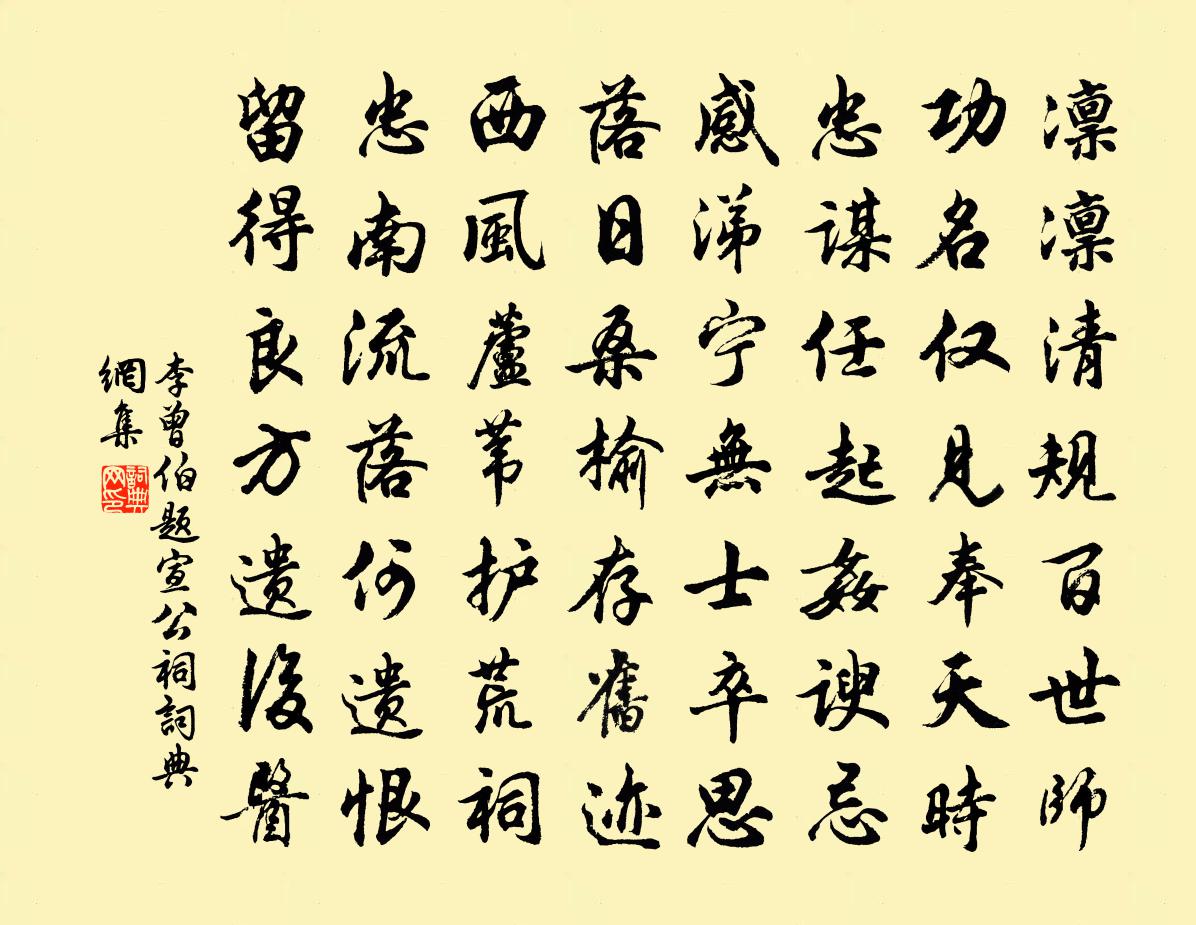 凛凛清規百世師
功名仅見奉天時
忠謀任起姦諛忌
感涕宁無士卒思
落日桑榆存舊迹
西風蘆苇护荒祠
忠南流落何遗恨
留得良方遗後醫
李曾伯题宣公祠詞典
網集
詞典网印